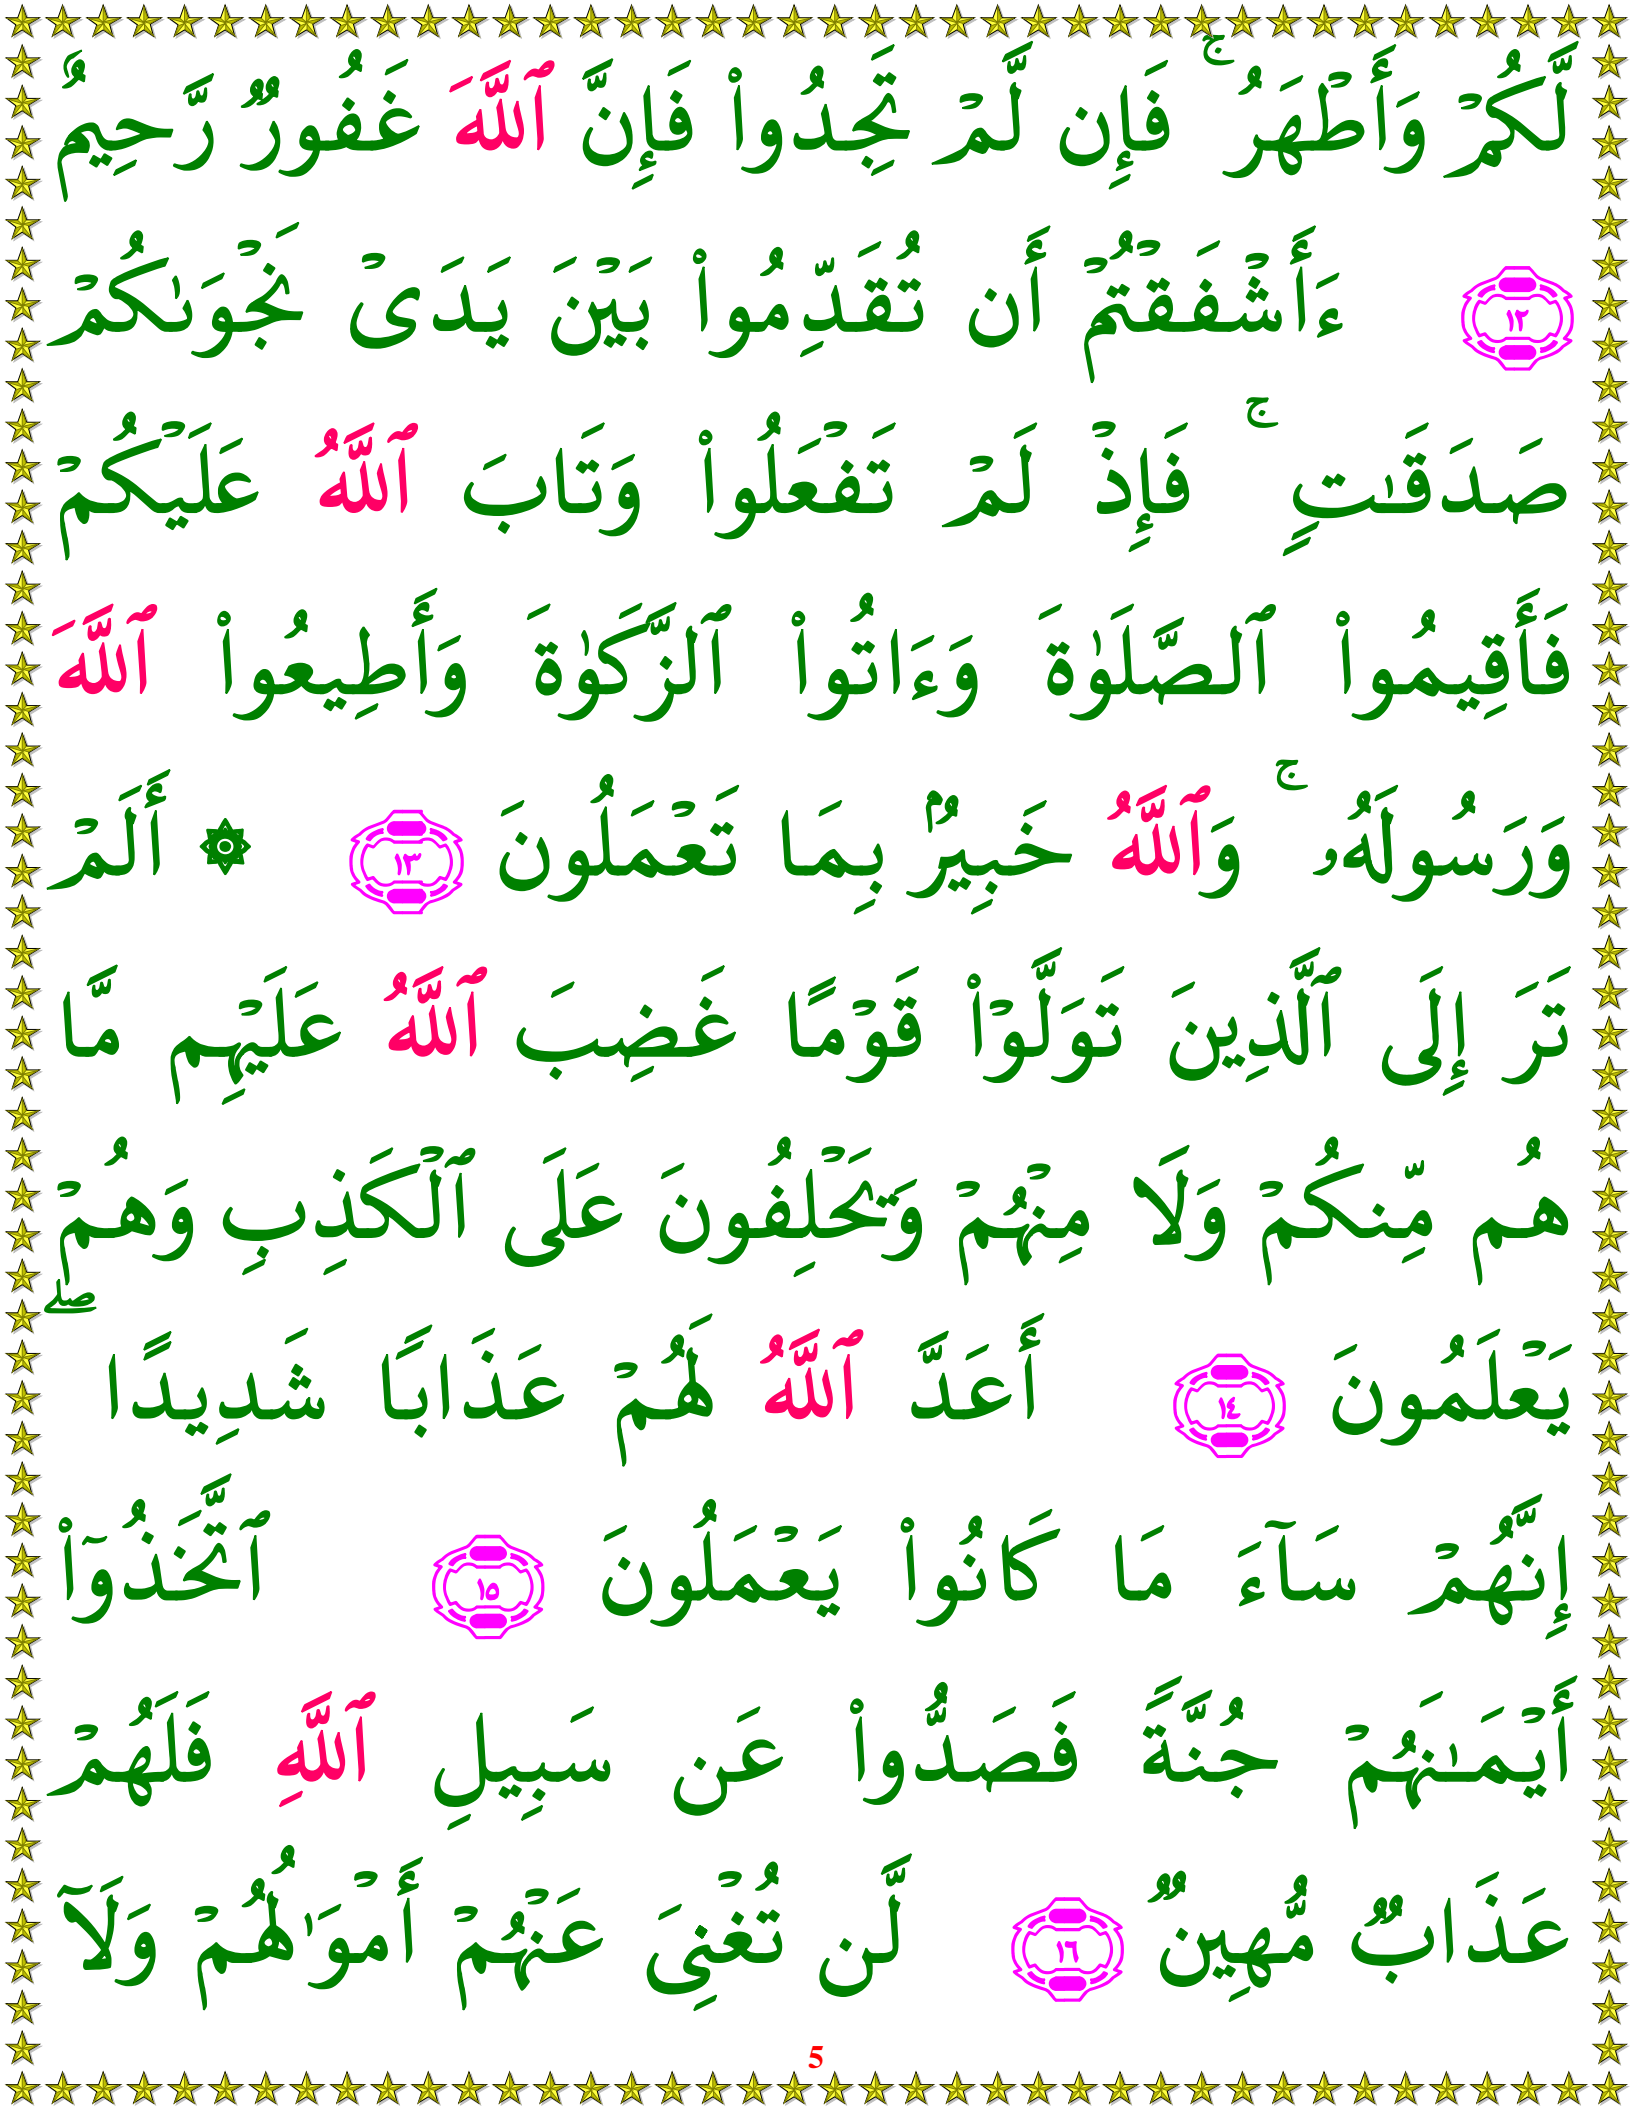 لَّكُمْ وَأَطْهَرُ ۚ فَإِن لَّمْ تَجِدُوا۟ فَإِنَّ ٱللَّهَ غَفُورٌ رَّحِيمٌ
١٢ ءَأَشْفَقْتُمْ أَن تُقَدِّمُوا۟ بَيْنَ يَدَىْ نَجْوَىٰكُمْ
صَدَقَـٰتٍ ۚ فَإِذْ لَمْ تَفْعَلُوا۟ وَتَابَ ٱللَّهُ عَلَيْكُمْ
فَأَقِيمُوا۟ ٱلصَّلَوٰةَ وَءَاتُوا۟ ٱلزَّكَوٰةَ وَأَطِيعُوا۟ ٱللَّهَ
وَرَسُولَهُۥ ۚ وَٱللَّهُ خَبِيرٌۢ بِمَا تَعْمَلُونَ ١٣ ۞ أَلَمْ
تَرَ إِلَى ٱلَّذِينَ تَوَلَّوْا۟ قَوْمًا غَضِبَ ٱللَّهُ عَلَيْهِم مَّا
هُم مِّنكُمْ وَلَا مِنْهُمْ وَيَحْلِفُونَ عَلَى ٱلْكَذِبِ وَهُمْ
يَعْلَمُونَ ١٤ أَعَدَّ ٱللَّهُ لَهُمْ عَذَابًا شَدِيدًا ۖ
إِنَّهُمْ سَآءَ مَا كَانُوا۟ يَعْمَلُونَ ١٥ ٱتَّخَذُوٓا۟
أَيْمَـٰنَهُمْ جُنَّةً فَصَدُّوا۟ عَن سَبِيلِ ٱللَّهِ فَلَهُمْ
عَذَابٌ مُّهِينٌ ١٦ لَّن تُغْنِىَ عَنْهُمْ أَمْوَٰلُهُمْ وَلَآ
5